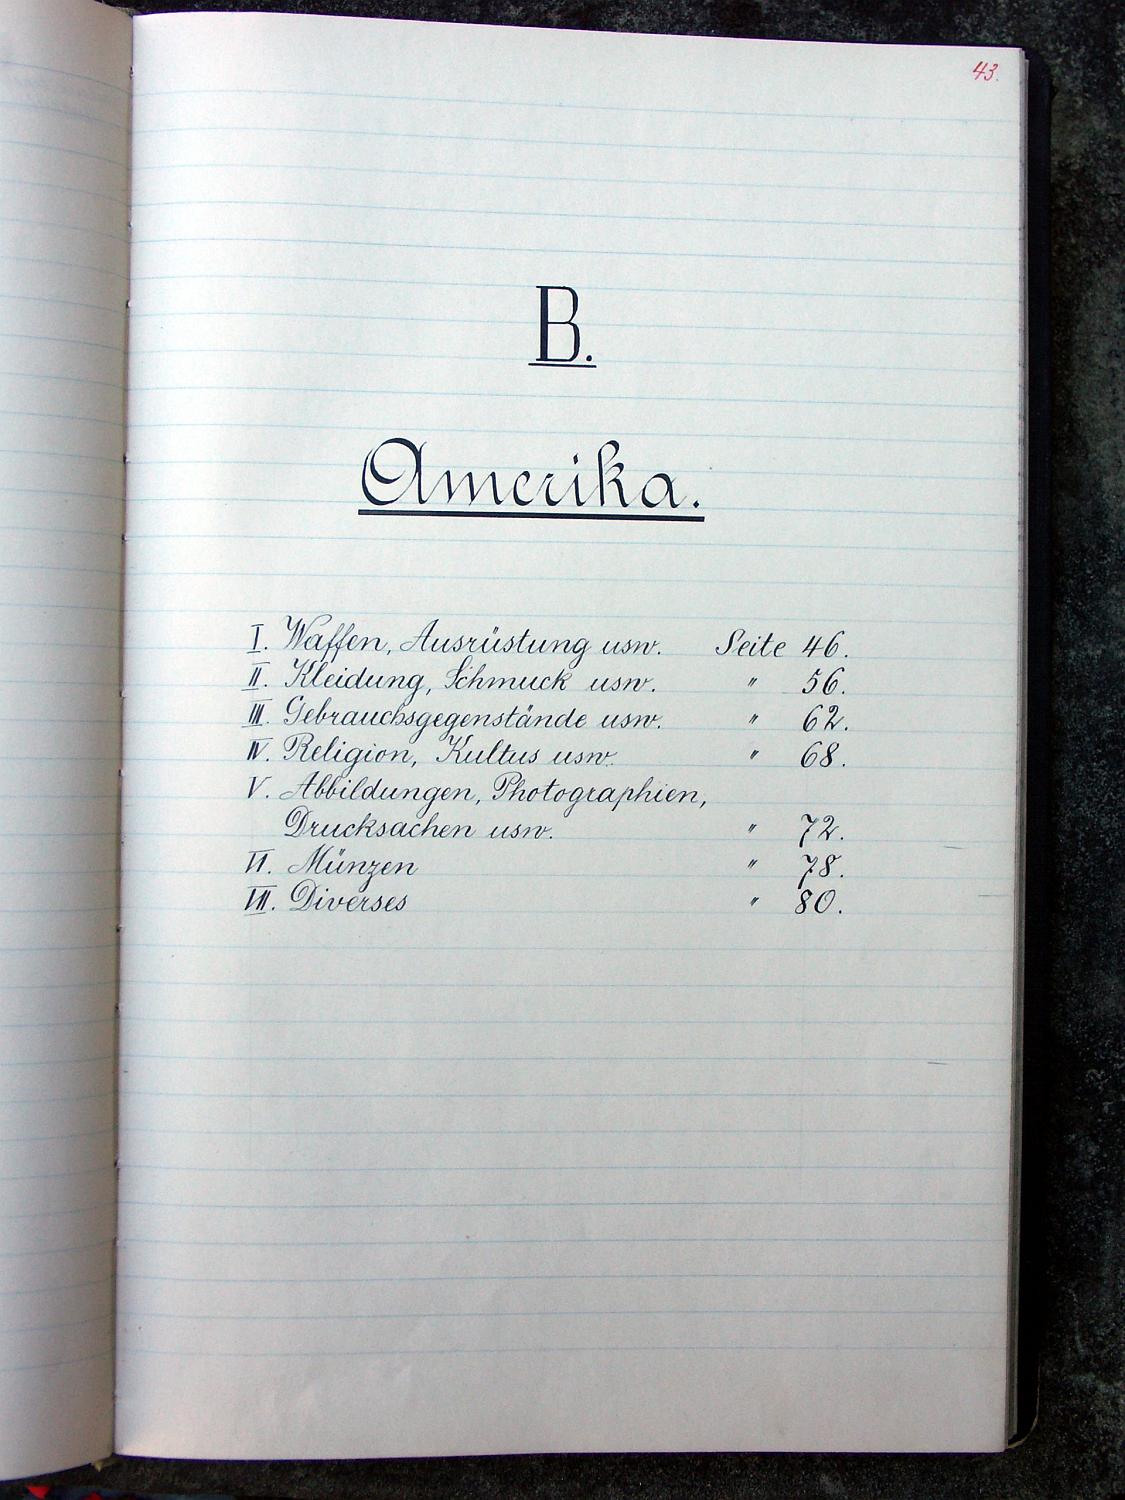 43.
B.
Amerika.
I. Waffen, Ausrüstung usw. Seite 46.
II. Kleidung, Schmuck usw. " 56.
III. Gebrauchsgegenstände usw. " 62.
IV. Religion, Kultus usw. " 68.
V. Abbildungen, Photographien,
Drucksachen usw. " 72.
VI. Münzen " 78.
VII. Diverses " 80.